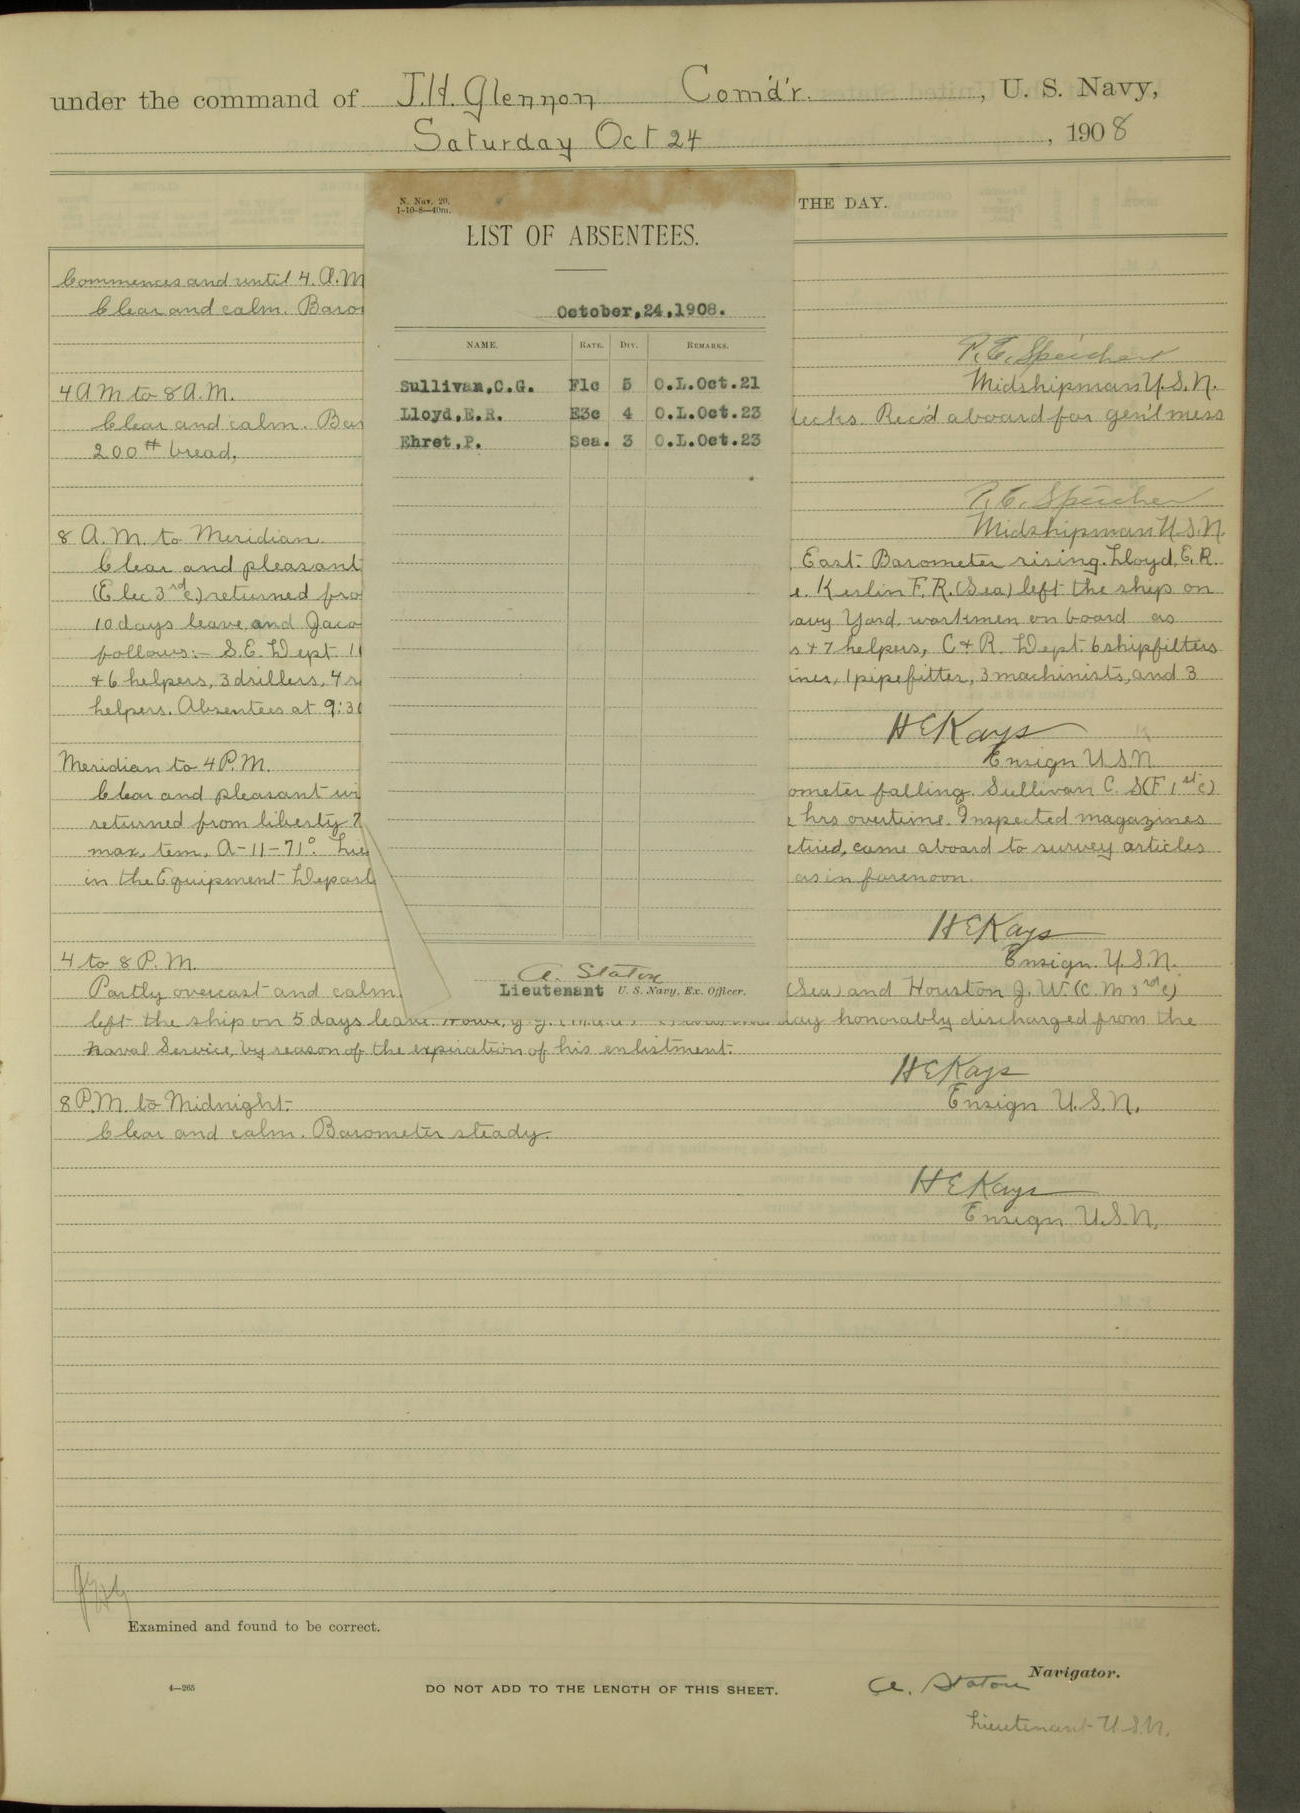 under the command of J.H. Glennon Com'd'r. , U. S. Navy,
Saturday Oct 24 , 1908
THE DAY.
N. Nav. 20.
1-10-8—40m.
LIST OF ABSENTEES.
October,24,1908.
NAME. RATE. DIV. REMARKS.
Sullivan,C.G. F1c 5 O.L.Oct.21
Lloyd,E.R. E3c 4 O.L.Oct.23
Ehret,P. Sea. 3 O.L.Oct.23
A. Staton
Lieutenant U. S. Navy, Ex. Officer.
Commences and until 4. A.M
Clear and calm. Baro
P.E. Speicher
Midshipman U.S.N.
4 A M to 8 A.M.
Clear and calm. Bar
decks. Rec'd aboard for gen'l mess
200 # bread.
P.E. Speicher
Midshipman U.S.N.
8 A.M. to Meridian.
Clear and pleasant East. Barometer rising. Lloyd, E.R.
(Elec 3rd c.) returned fro Kerlin F.R. (Sea) left the ship on
10 days leave and Jaco avy Yard workmen on board as
follows:- S.E. Dept s + 7 helpers, C & R. Dept. 6 shipfitters
+ 6 helpers, 3 drillers, 4 , 1 pipefitter, 3 machinists, and 3
helpers. Absentees at 9:30
H E Kays
Ensign U S N
Meridian to 4 P.M.
Clear and pleasant wi ometer falling. Sullivan C. S (F 1st c)
returned from liberty hrs overtime. Inspected magazines
max. tem. A-11-71°. Lieu etired, came aboard to survey articles
in the Equipment Depart as in forenoon.
H E Kays
Ensign. U.S.N.
4 to 8 P. M.
Partly overcast and calm. (Sea) and Houston J. W. (C. M 3rd c)
left the ship on 5 days leave. day honorably discharged from the
Naval Service, by reason of the expiration of his enlistment.
H E Kays
Ensign U.S.N.
8 P.M. to Midnight.
Clear and calm. Barometer steady.
H E Kays
Ensign U.S.N.
Examined and found to be correct.
4—265
DO NOT ADD TO THE LENGTH OF THIS SHEET.
A. Staton Navigator.
Lieutenant U.S.N.